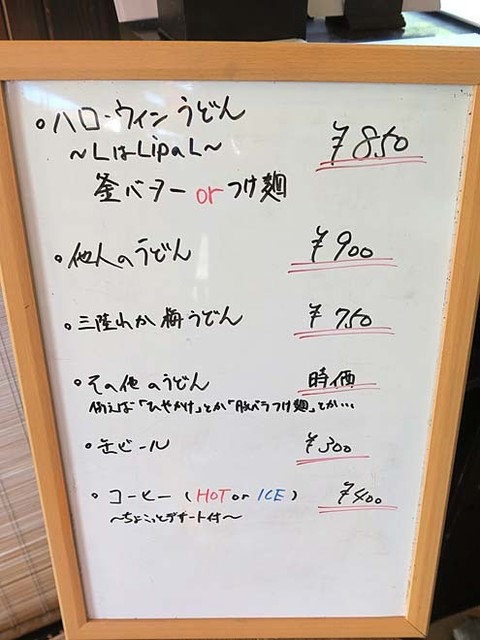 。ハロ-ウィン うどん ¥850
～LはLipaL～
釜バター or つけ麺
。他人のうどん ¥900
。三陸わか梅うどん ¥750
。その他のうどん 時価
例えば「ひやかけ」とか「豚バラつけ麺」とか…
。缶ビール ¥300
。コーヒー (HOT or ICE) ¥400
～ちょこっとデザート付～